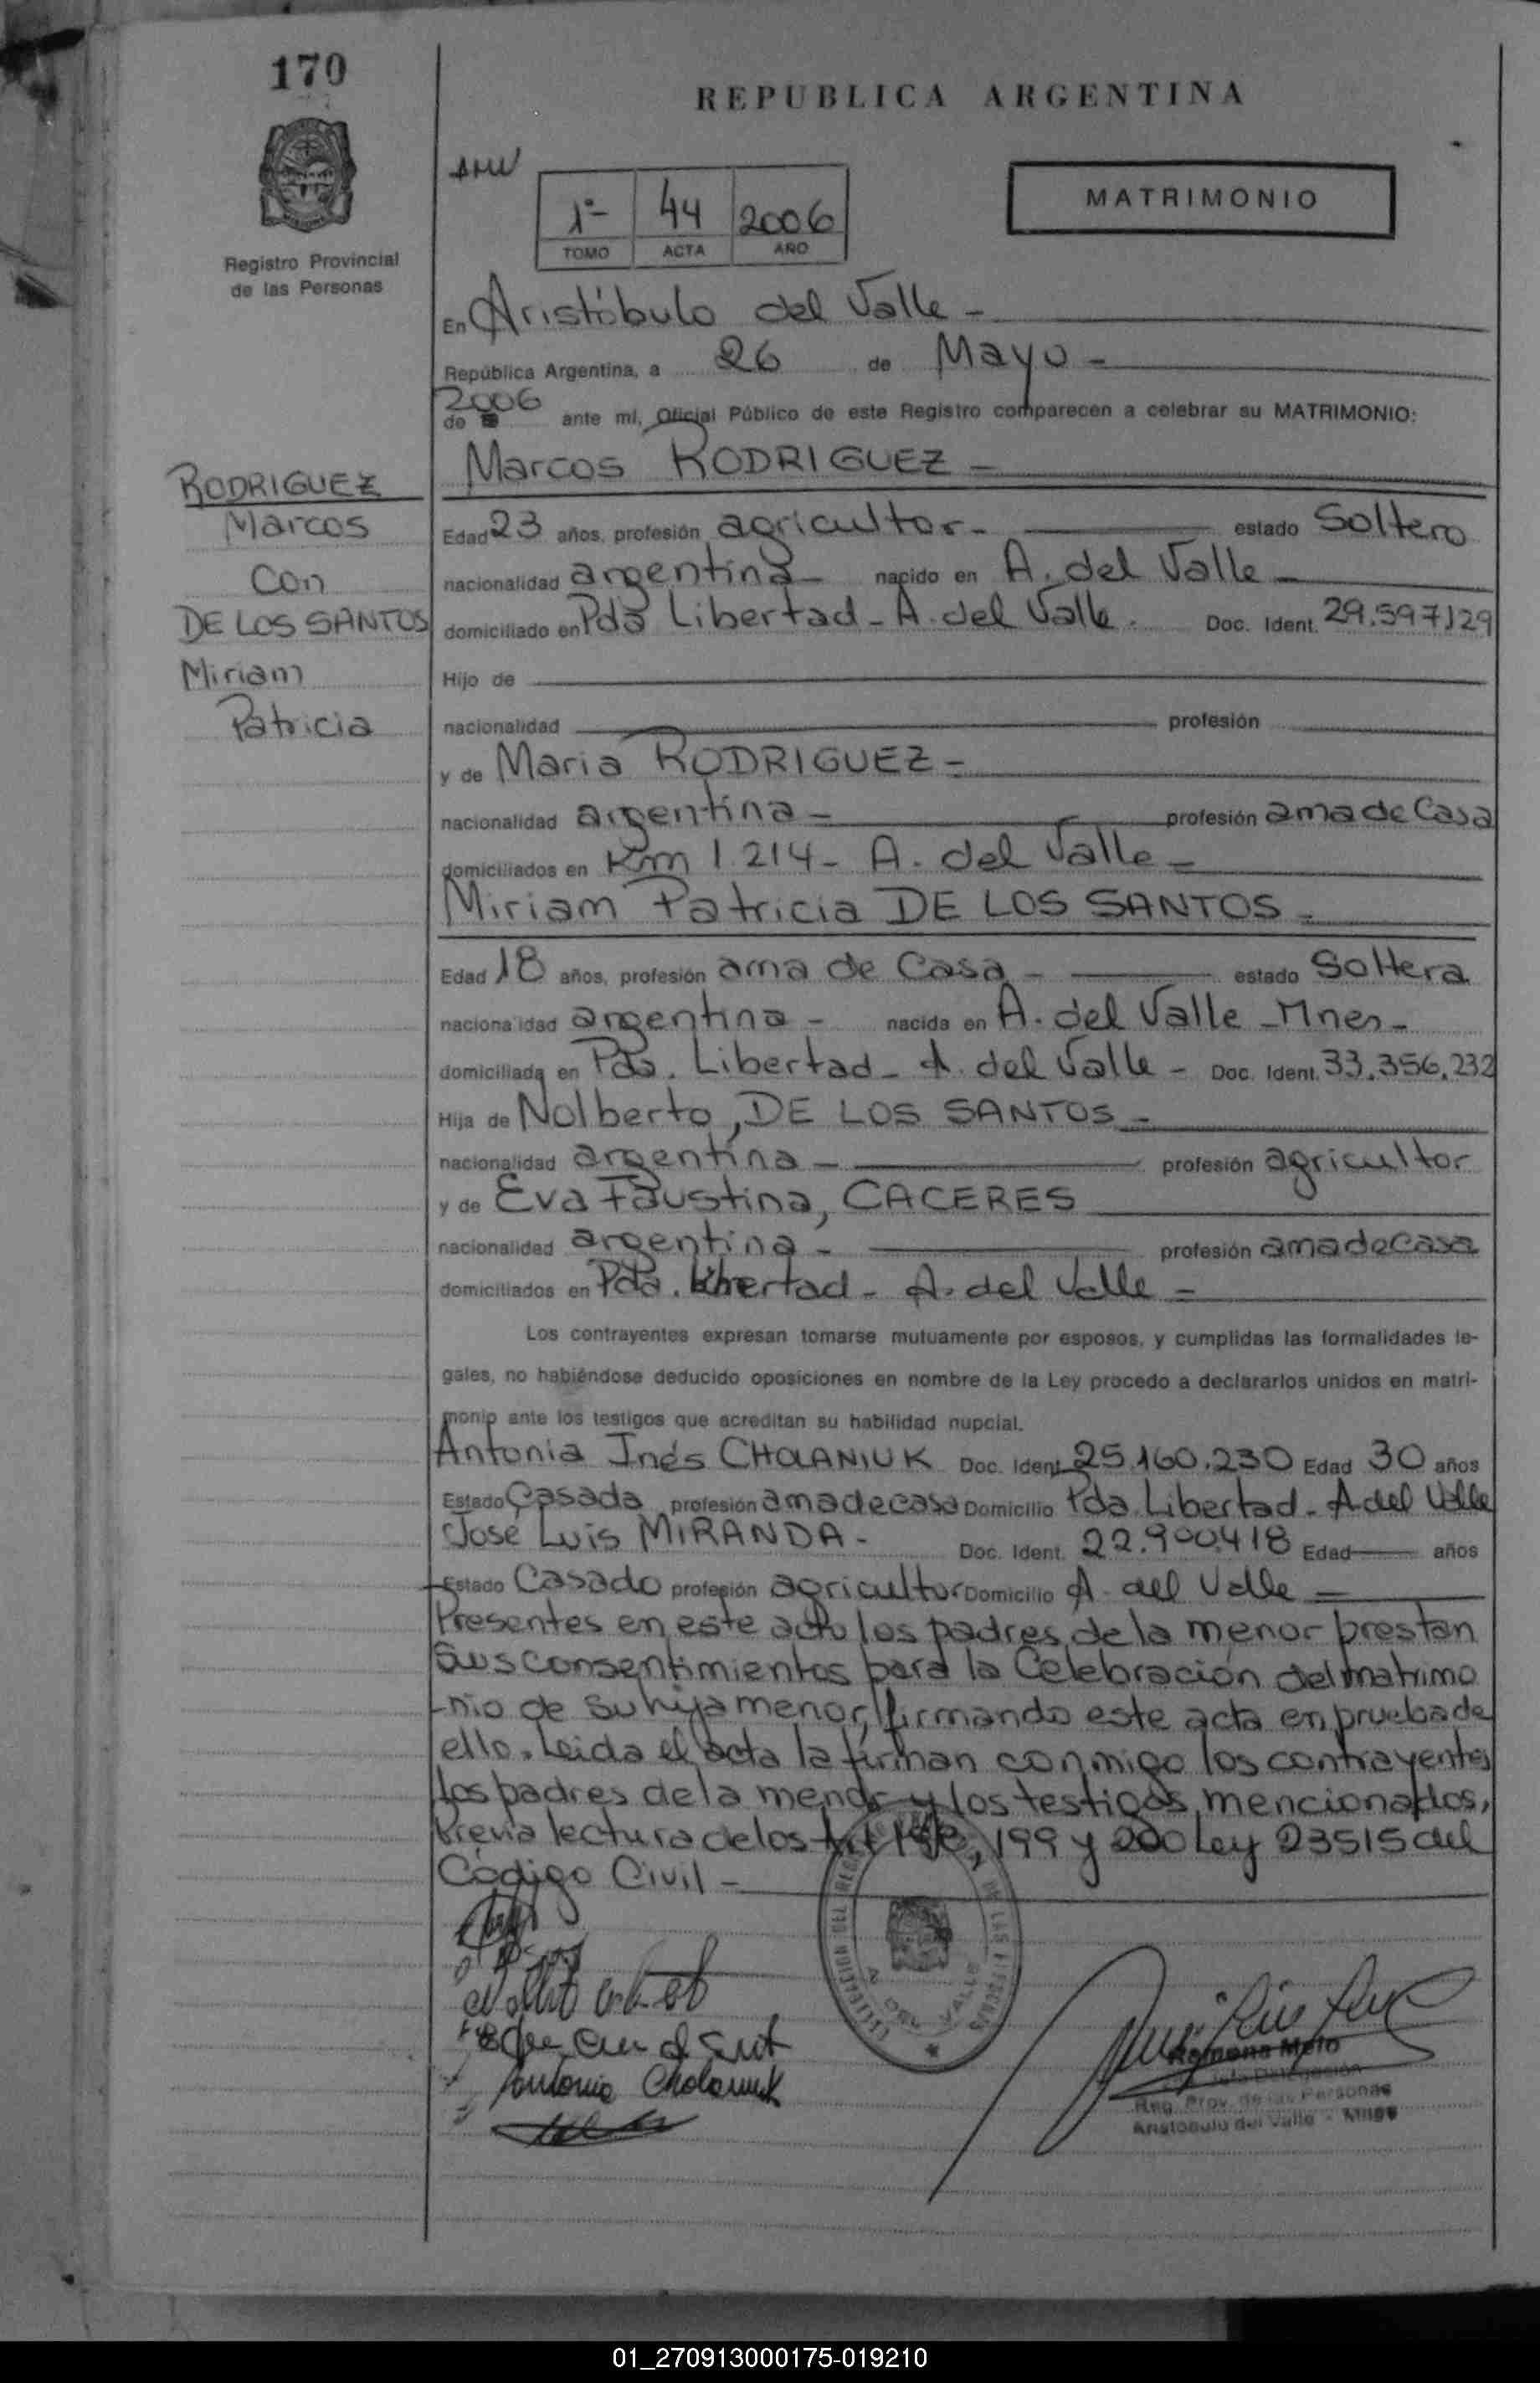 170
REPUBLICA ARGENTINA
MATRIMONIO
1º- 44 2006
TOMO ACTA AÑO
Registro Provincial
de las Personas
En Aristóbulo del Valle -
República Argentina, a 26 de Mayo -
2006
de ante mí, Oficial Público de este Registro comparecen a celebrar su MATRIMONIO:
Marcos RODRIGUEZ -
RODRIGUEZ
Marcos
con
DE LOS SANTOS
Miriam
Patricia
Edad 23 años, profesión agricultor - estado Soltero
nacionalidad argentina - nacido en A. del Valle -
domiciliado en Pda Libertad - A. del Valle. Doc. Ident. 29.597129
Hijo de
nacionalidad profesión
y de Maria RODRIGUEZ -
nacionalidad argentina - profesión ama de Casa
domiciliados en Km 1.214 - A. del Valle -
Miriam Patricia DE LOS SANTOS -
Edad 18 años, profesión ama de Casa - estado Soltera
nacionalidad argentina - nacida en A. del Valle - Mnes -
domiciliada en Pda. Libertad - A. del Valle - Doc. Ident. 33.356.232
Hija de Nolberto, DE LOS SANTOS -
nacionalidad argentina - profesión agricultor
y de Eva Faustina, CACERES
nacionalidad argentina - profesión ama de casa
domiciliados en Pda. Libertad - A. del Valle -
Los contrayentes expresan tomarse mutuamente por esposos, y cumplidas las formalidades le-
gales, no habiéndose deducido oposiciones en nombre de la Ley procedo a declararlos unidos en matri-
monio ante los testigos que acreditan su habilidad nupcial.
Antonia Inés CHOLANIUK Doc. Ident. 25.160.230 Edad 30 años
Estado Casada profesión ama de casa Domicilio Pda. Libertad - A del Valle
José Luis MIRANDA - Doc. Ident. 22.900.418 Edad años
Estado Casado profesión agricultor Domicilio A. del Valle -
Presentes en este acto los padres de la menor prestan
sus consentimientos para la Celebración del matrimo
-nio de su hija menor, firmando este acta en prueba de
ello. Leida el acta la firman conmigo los contrayentes
los padres de la menor y los testigos mencionados,
Previa lectura de los Art 198, 199 y 200 Ley 23515 del
Código Civil -
Antonia Cholaniuk
Ramona Melo
Jefa Delegación
Reg. Prov. de las Personas
Aristóbulo del Valle - Mnes
01_270913000175-019210